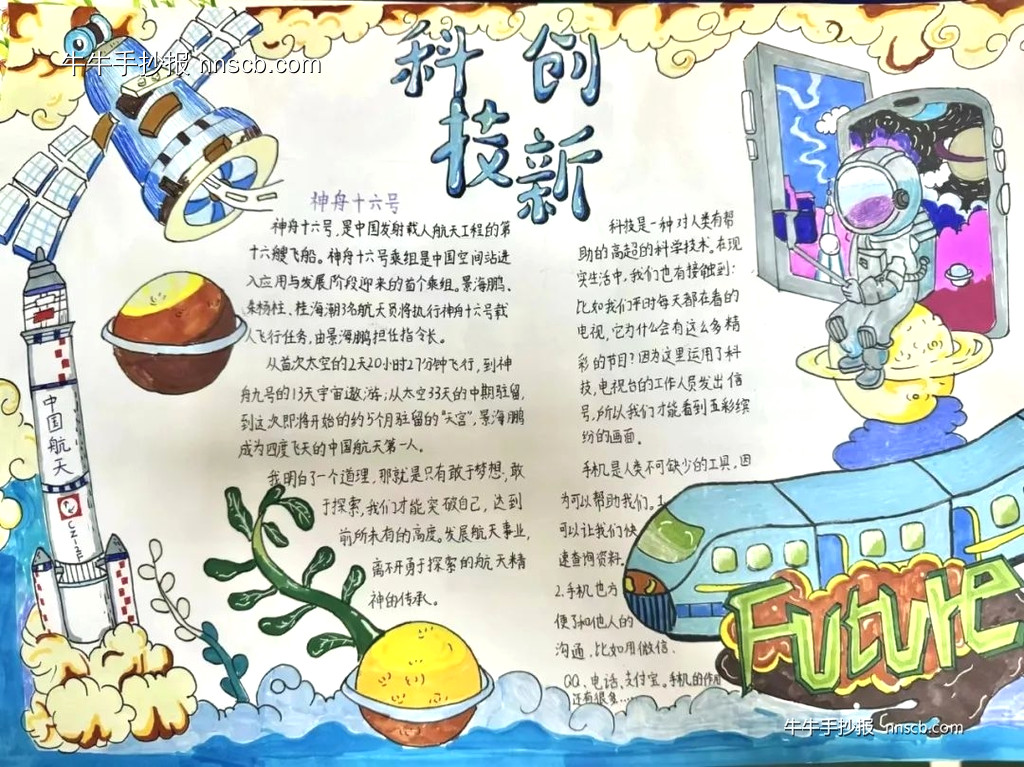 牛牛手抄报 nnscb.com
科技
创新
神舟十六号
神舟十六号,是中国发射载人航天工程的第
十六艘飞船。神舟十六号乘组是中国空间站进
入应用与发展阶段迎来的首个乘组。景海鹏、
朱杨柱、桂海潮3名航天员将执行神舟十六号载
人飞行任务,由景海鹏担任指令长。
从首次太空的2天20小时27分钟飞行,到神
舟九号的13天宇宙遨游;从太空33天的中期驻留,
到这次即将开始的约5个月驻留的“天宫”,景海鹏
成为四度飞天的中国航天第一人。
我明白了一个道理,那就是只有敢于梦想,敢
于探索,我们才能突破自己,达到
前所未有的高度。发展航天事业,
离不开勇于探索的航天精
神由传承。
科技是一种对人类有帮
助的高超的科学技术。在现
实生活中,我们也有接触到:
比如我们平时每天都在看的
电视,它为什么会有这么多精
彩的节目?因为这里运用了科
技,电视台的工作人员发出信
号,所以我们才能看到五彩缤
纷的画面。
手机是人类不可缺少的工具,因
为可以帮助我们。1.
可以让我们快
速查询资料。
2.手机也方
便了和他人的
沟通,比如用微信.
QQ、电话、支付宝。手机的作用
还有很多...
中国航天
CZ-2F
FUTURE
牛牛手抄报 nnscb.com